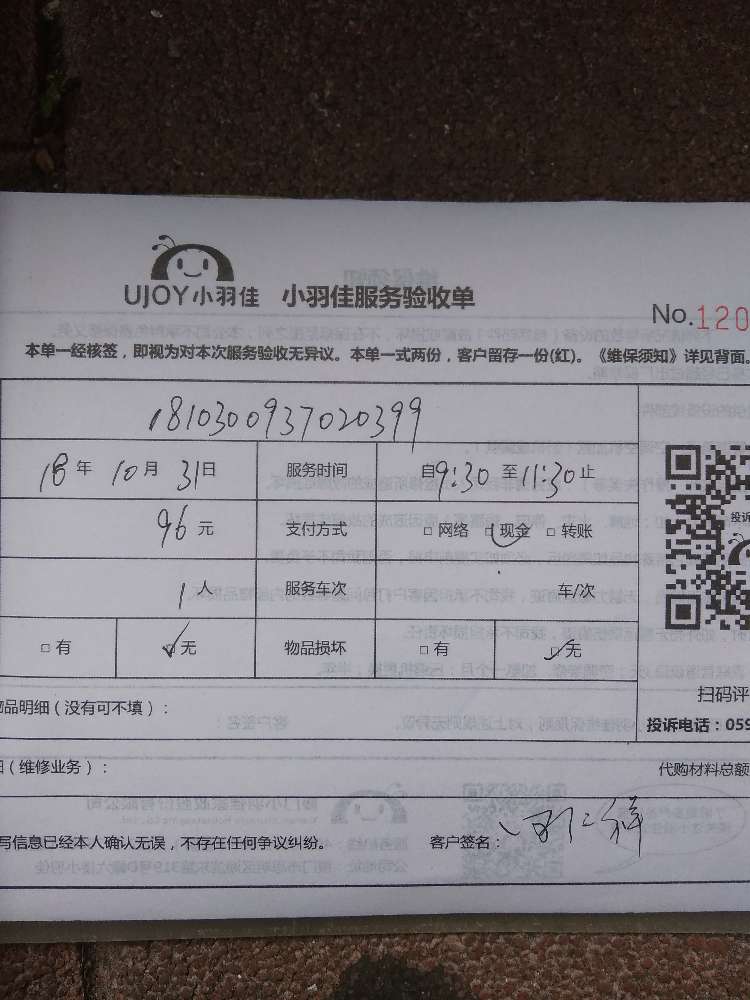 UJOY小羽佳 小羽佳服务验收单
No.120
本单一经核签，即视为对本次服务验收无异议。本单一式两份，客户留存一份(红)。《维保须知》详见背面。
1810300937020399
18年 10月 31日 服务时间 自9:30至11:30止
96元 支付方式 □网络 □现金 □转账
1人 服务车次 车/次
□有 □无 物品损坏 □有 □无
投诉
扫码评
品明细（没有可不填）：
投诉电话：059
（维修业务）： 代购材料总额
写信息已经本人确认无误，不存在任何争议纠纷。 客户签名：